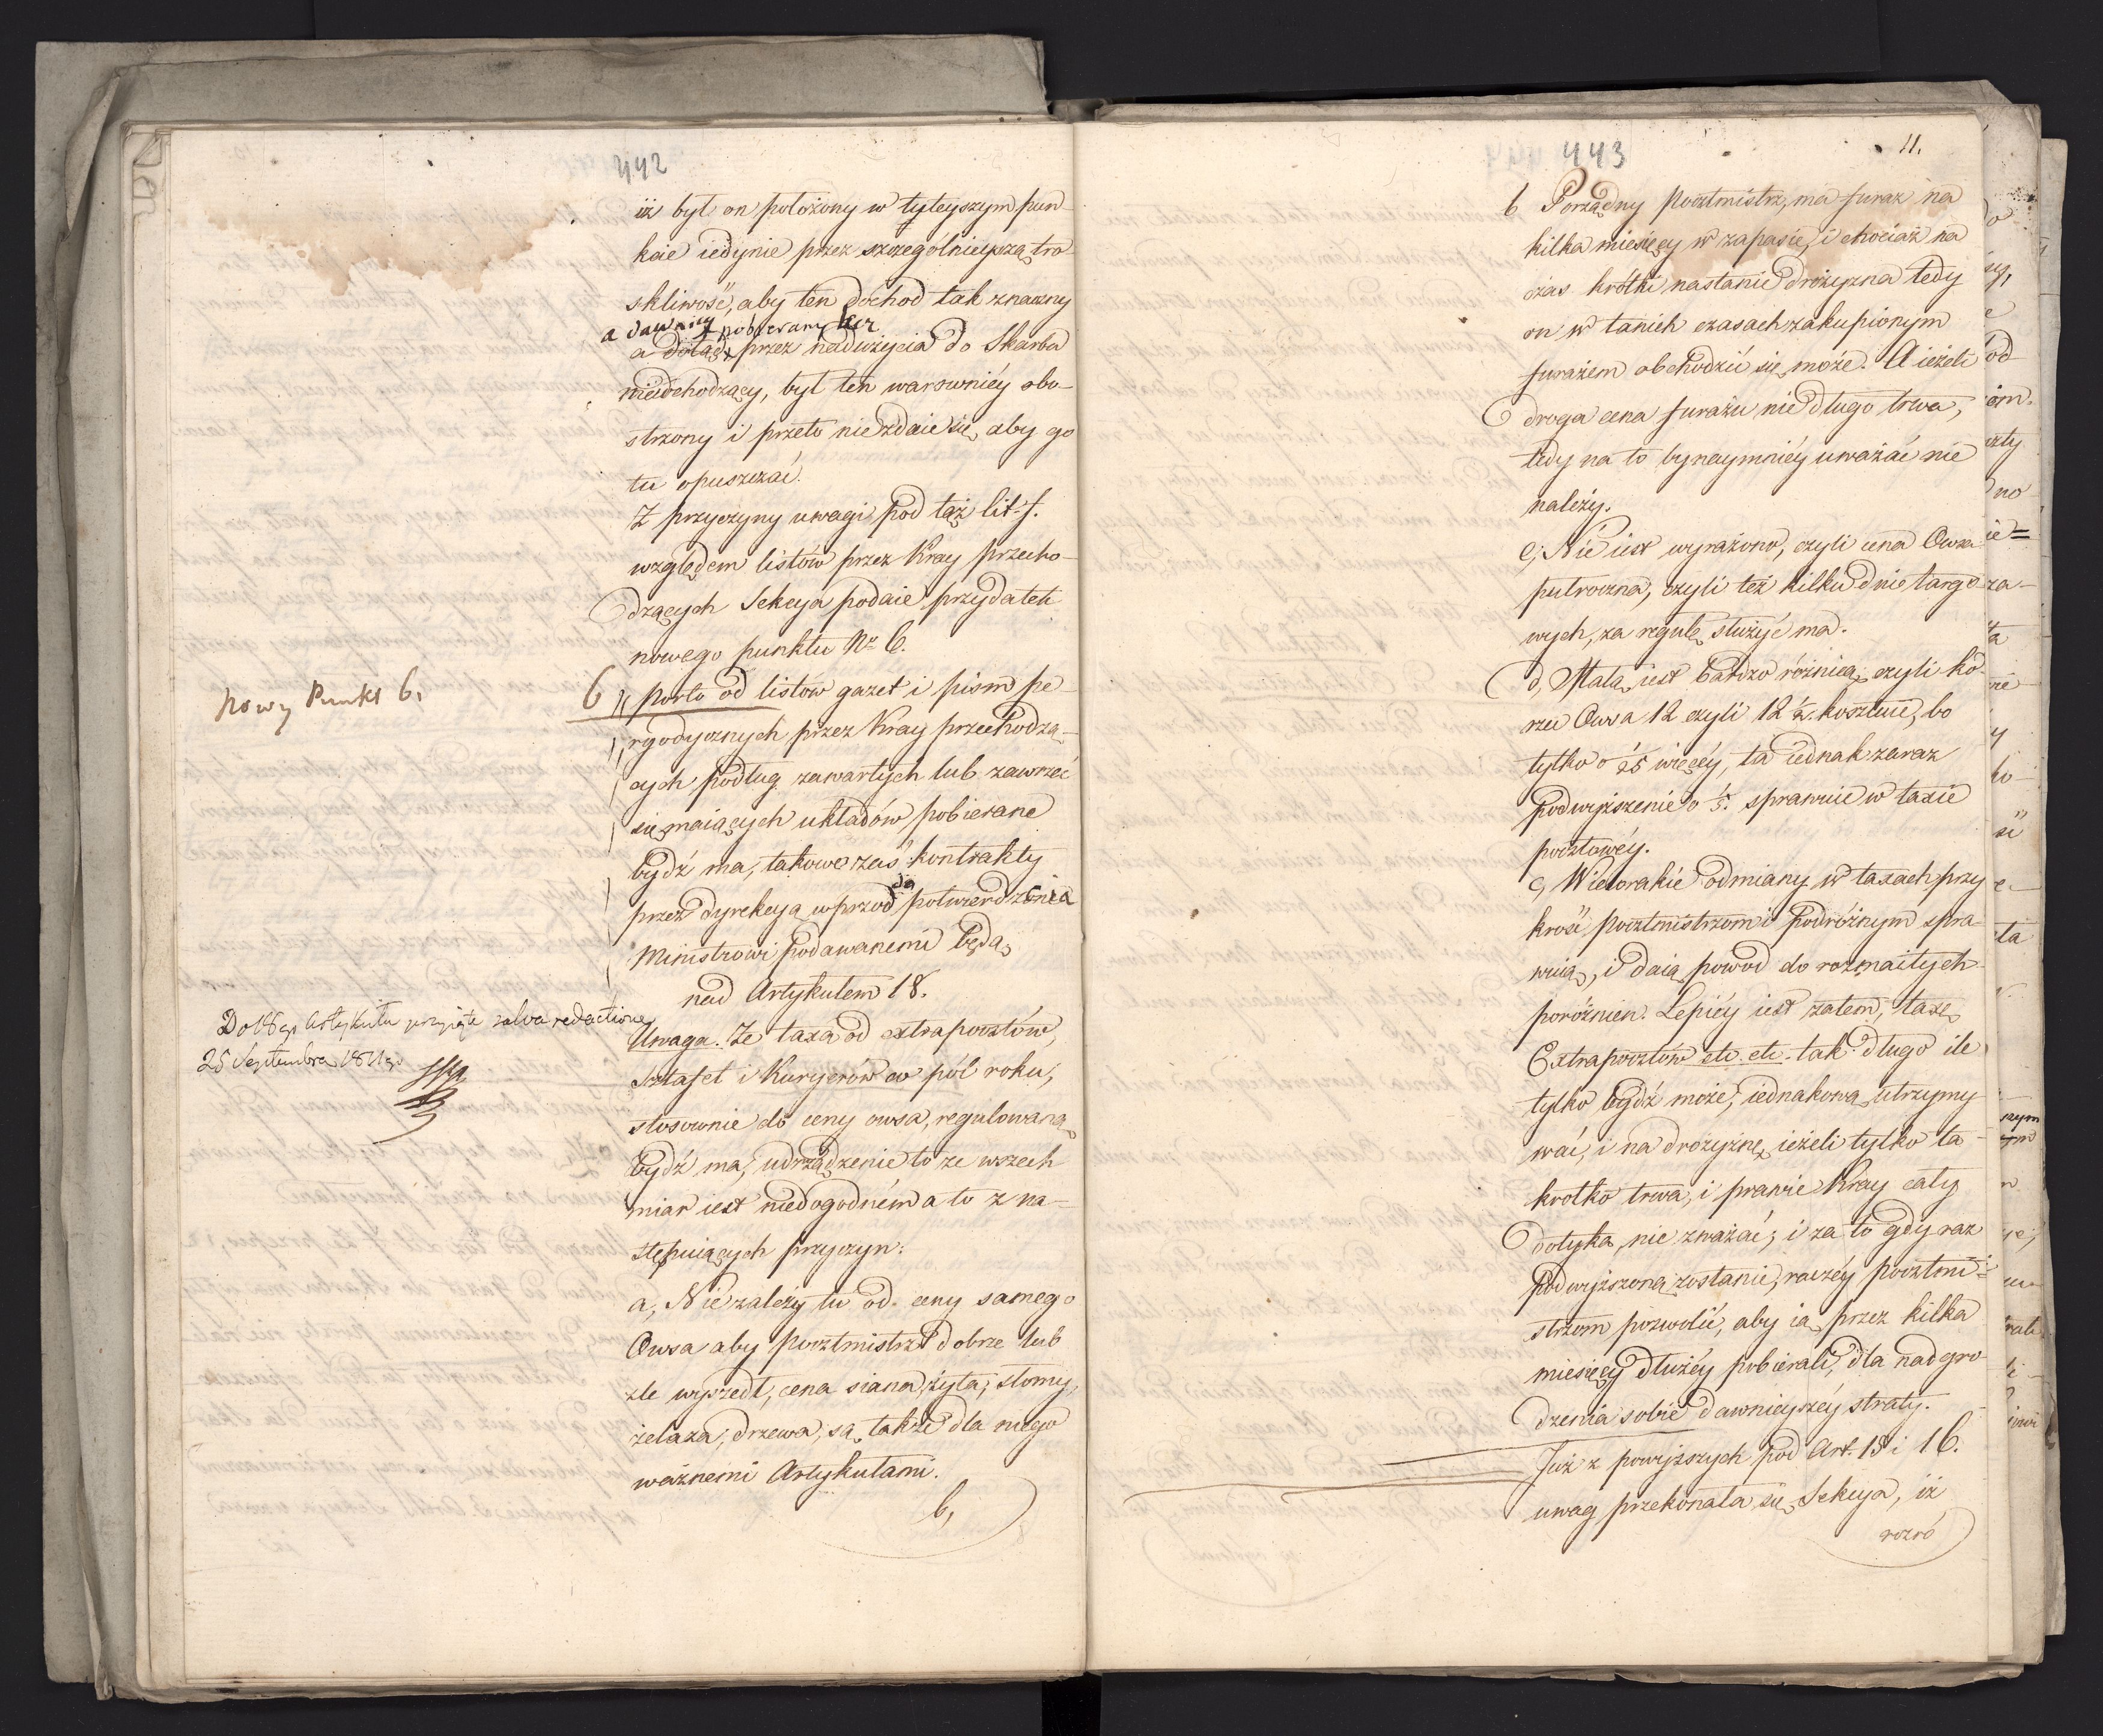 442
iż był on położony w tyteyszym pun-
kcie iedynie przez szczególnieyszą tro-
skliwość, aby ten dochod tak znaczny
a dawniey pobierany lecz
a dotąd przez nadużycia do Skarbu
niedochodzący, był ten warowniéy obo-
strzony i przeto nie zdaie się, aby go
tu opuszczać.
Z przyczyny uwagi pod taż lit. f.
względem listów przez Kray przecho-
dzących Sekcya podaie przydatek
nowego punktu No 6.
nowy Punkt 6.
6 porto od listow gazet i pism pe-
ryodycznych przez Kray przechodzą-
cych podług zawartych lub zawrzeć
się maiących układów, pobierane
bydź ma, takowe zaś kontrakty
przez dyrekcyą wprzod do potwierdzenia
Ministrowi podawanemi będą
nad Artykułem 18.
Do 18go Artykułu przyięte salva redactione
25 Septembra 1811go
Uwaga. Że taxa od extrapocztów,
Sztafet i Kuryerów co pół roku,
stosownie do ceny owsa, regulowaną
bydź ma, udrządzenie to ze wszech
miar iest niedogodném a to z na-
stępuiących przyczyn:
a, Nie zależy tu od ceny samego
Owsa aby pocztmistrz dobrze lub
źle wyszedł, cena siana, żyta, słomy,
żelaza, drzewa, są także dla niego
ważnemi Artykułami.
b,
443
11.
b Porządny pocztmistrz, ma furaż na
kilka miesięcy w zapasie, i chociaż na
czas krótki nastanie drożyzna tedy
on w tanich czasach zakupionym
furażem obchodzić się może. A ieżeli
droga cena furażu nie długo trwa,
tedy na to bynaymniéy uważać nie
należy.
c, Nie iest wyrażono, czyli cena Owsa
pułroczna, czyli też kilku dni targo-
wych, za regułę służyć ma.
d, Małą iest bardzo różnicą czyli ko-
rzec Owsa 12 czyli 12 ½ kosztuie, bo
tylko o 1/25 więcéy, ta iednak zaraz
podwyższenie o 1/5. sprawuie w taxie
pocztowéy.
e, Wielorakie odmiany w taxach przy
krość pocztmistrzom i podróżnym spra-
wuią, i daią powod do rozmaitych
poróżnien. Lepiéy iest zatem, taxę
Extrapocztów etc. etc. tak długo ile
tylko bydź może, iednakową utrzymy-
wać, i na drożyznę ieżeli tylko ta
krotko trwa, i prawie Kray cały
dotyka, nie zważać; i za to gdy raz
podwyższoną zostanie, raczéy pocztmi-
strzom pozwolić, aby ią przez kilka
miesięcy dłużéy pobierali, dla nadgro-
dzenia sobie dawnieyszéy straty.
Już z powyższych pod Art. 15 i 16.
uwag przekonała się Sekcya, iż
rozró